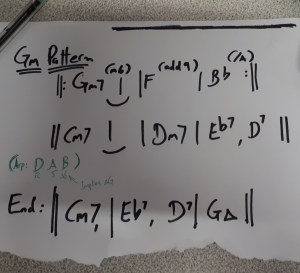 Gm Pattern
||: Gm7 (m6) | F (add9) | Bb (/A) :||
|| Cm7 | | Dm7 | Eb7, D7 ||
D A B
End: || Cm7, | Eb7, D7 | G△ ||